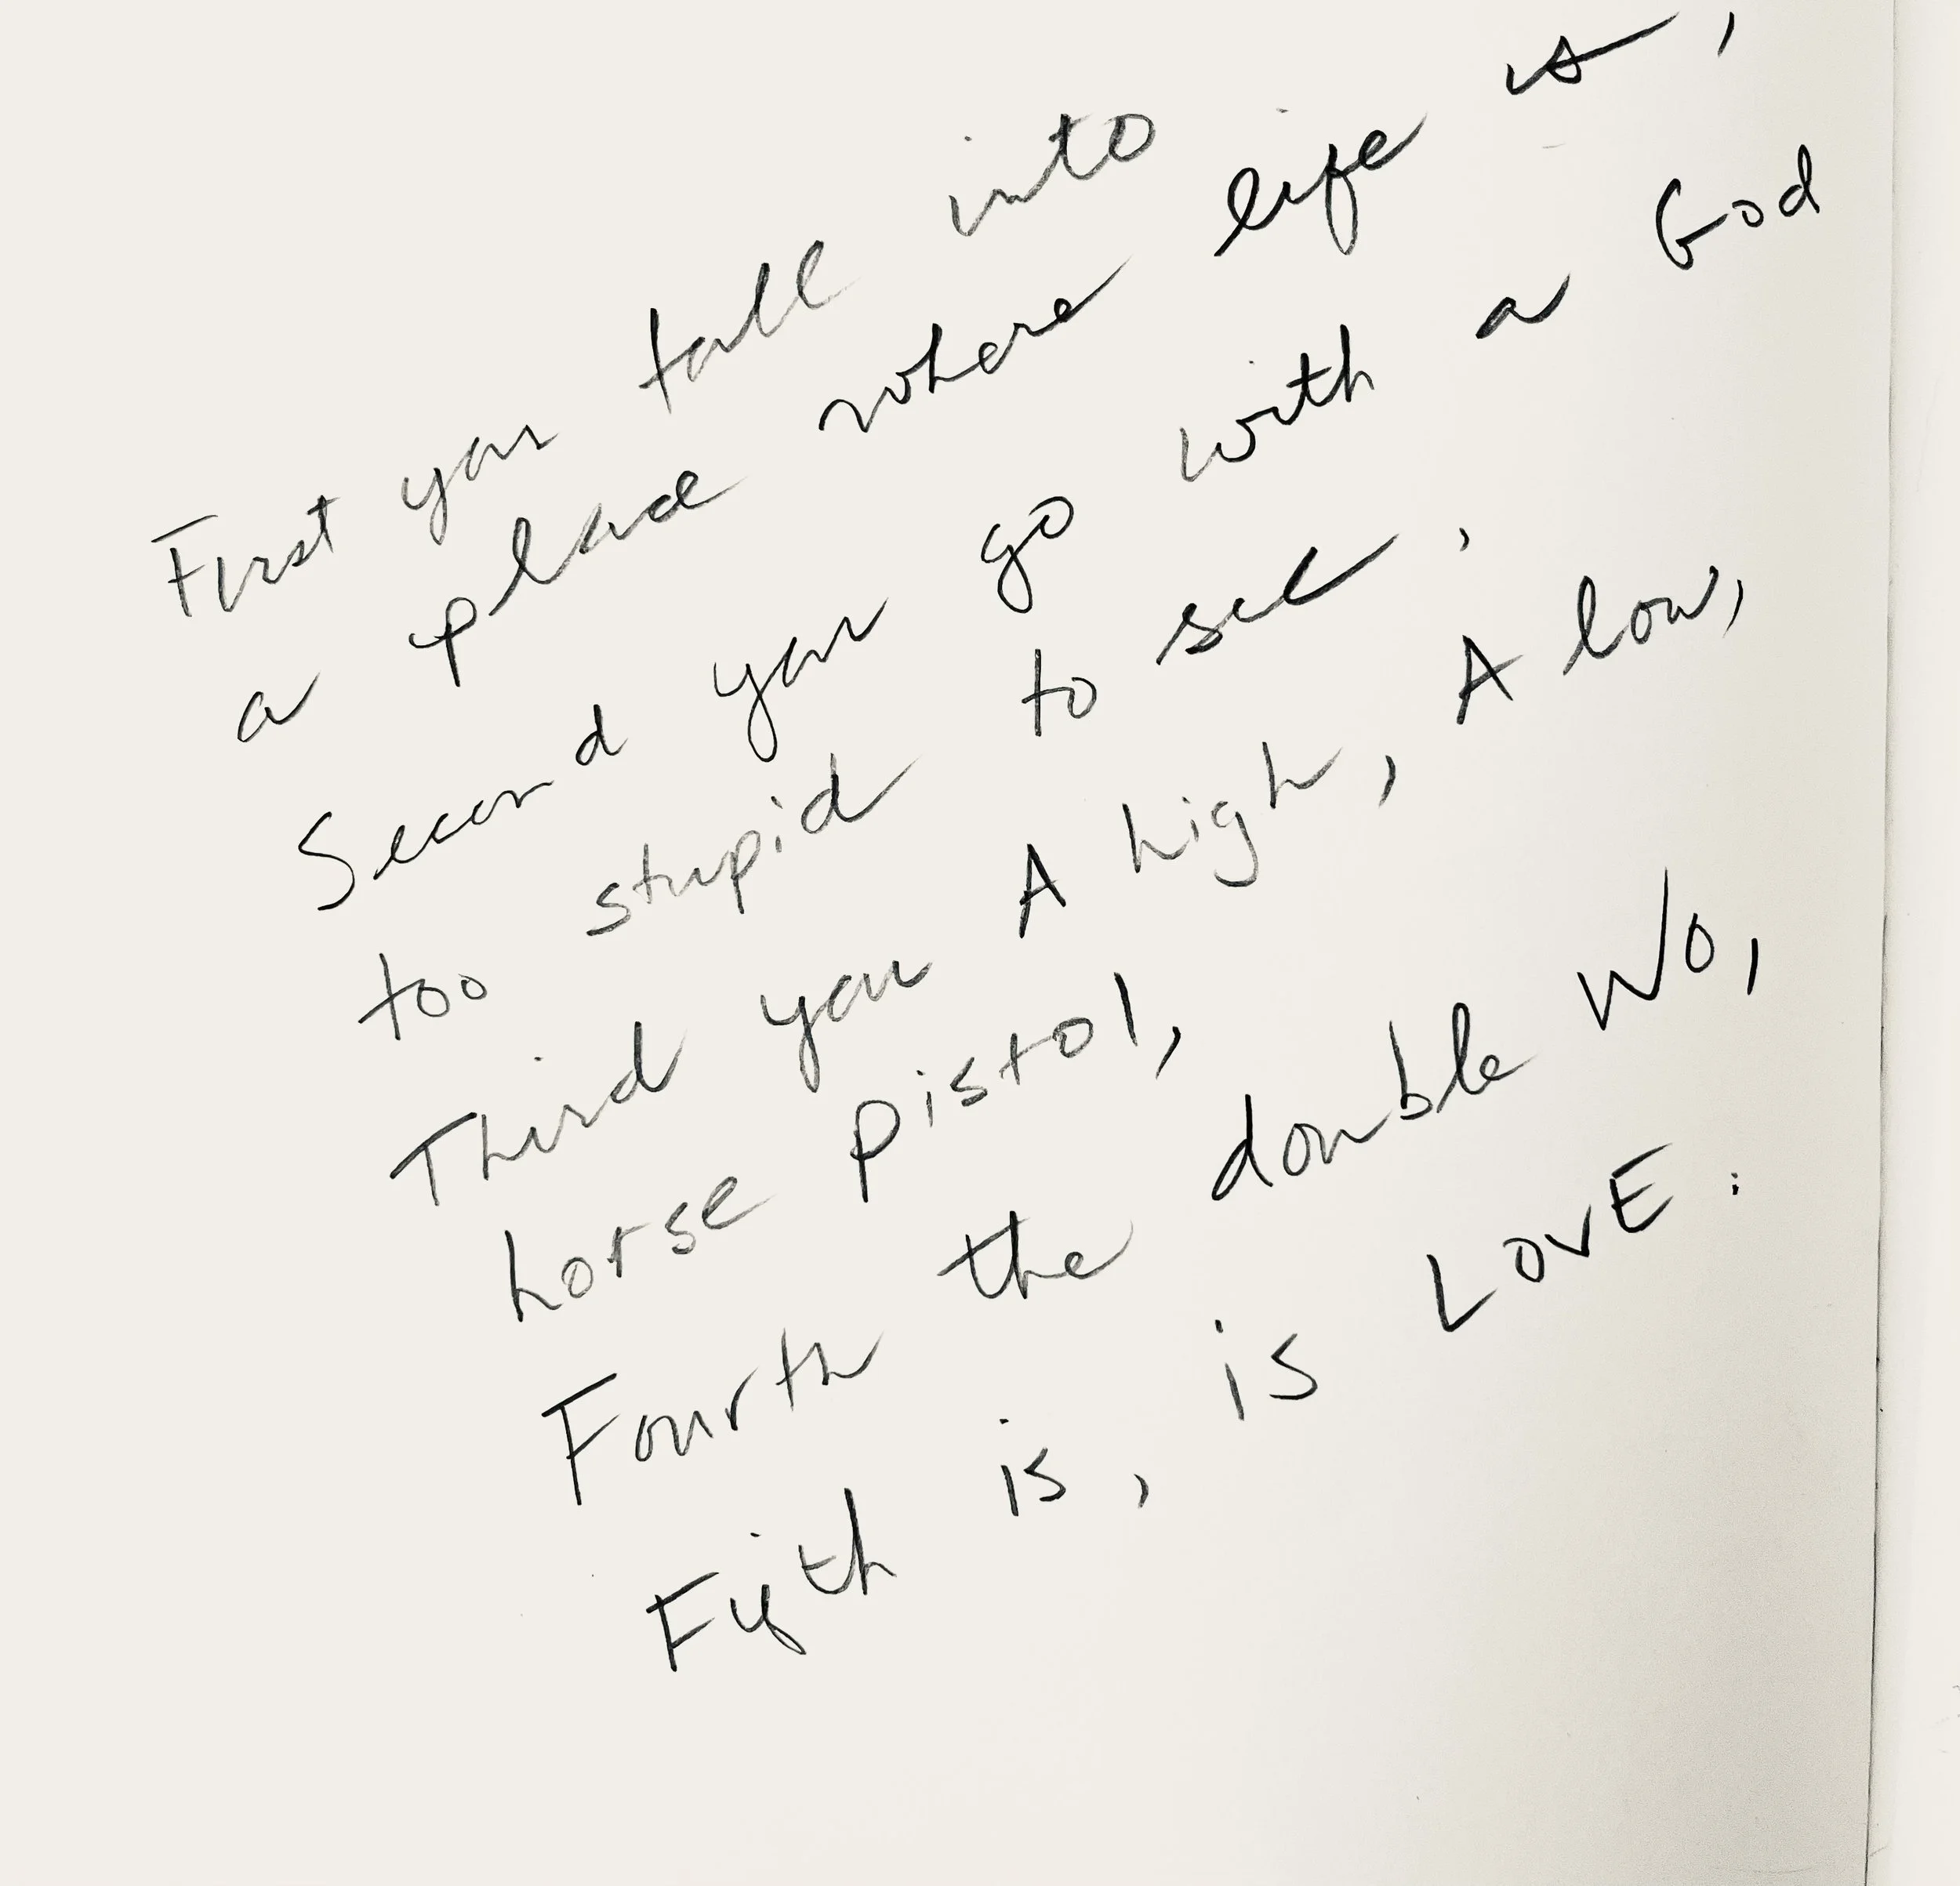 First you fall into
a place where life is,
Second you go with a God
too stupid to see,
Third you A high, A low,
horse pistol,
Fourth the double Wo,
Fifth is, is LOVE: